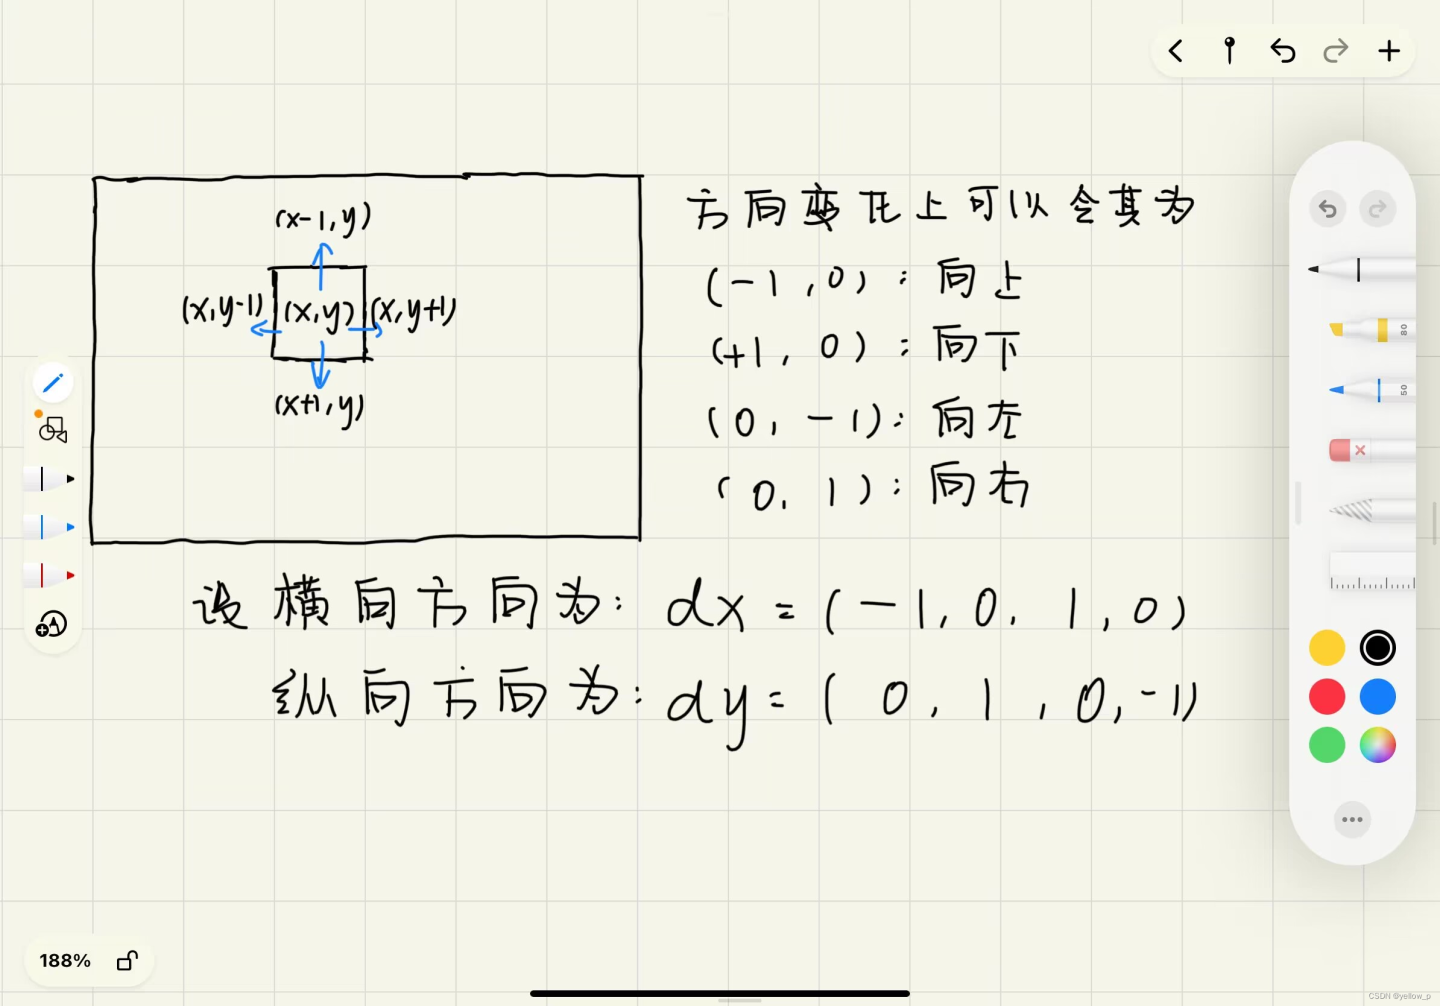 (x-1,y)
(x,y-1) (x,y) (x,y+1)
(x+1,y)
方向变化上可以令其为
(-1,0):向上
(+1,0):向下
(0,-1):向左
(0,1):向右
设横向方向为:dx=(-1,0,1,0)
纵向方向为:dy=(0,1,0,-1)
80
50
188%
CSDN @yellow_p